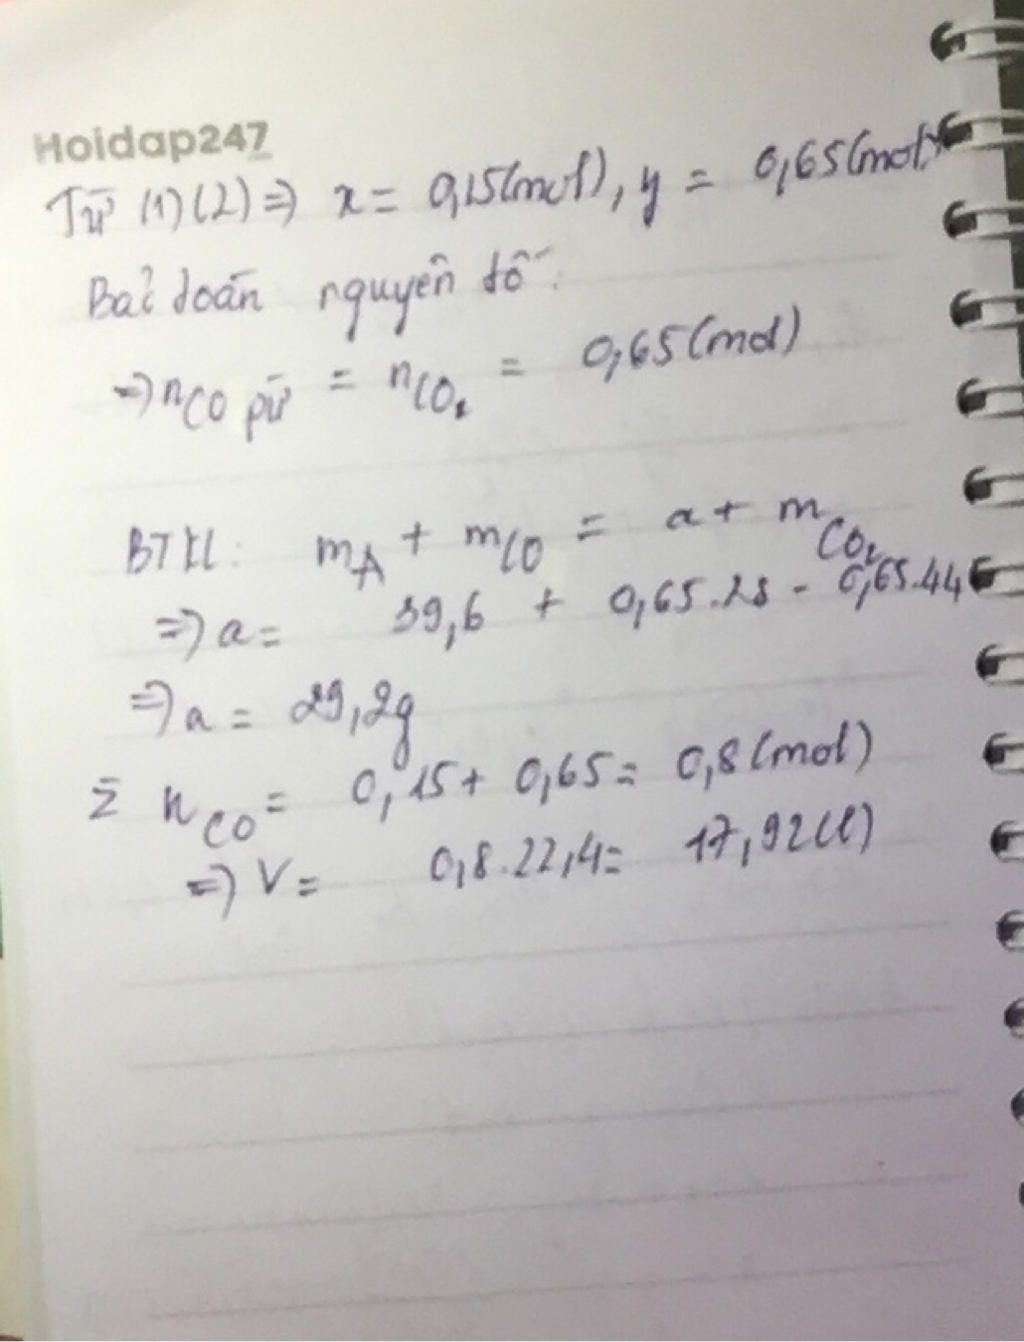 Hoidap247
Từ (1)(2) => x = 0,15(mol), y = 0,65(mol)
Bảo toàn nguyên tố:
=> nCO pứ = nCO₂ = 0,65(mol)
BTKL: mA + mCO = a + mCO₂
=> a = 39,6 + 0,65.28 - 0,65.44
=> a = 29,2g
Σ nCO = 0,15 + 0,65 = 0,8(mol)
=> V = 0,8.22,4 = 17,92(l)